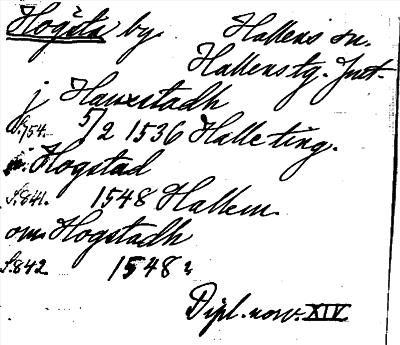 Högsta by. Hallens sn.
Hallens tg. Jmt.
j Hauxstadh
S.754. 5/2 1536 Halle ting.
i Hogstad
S.841. 1548 Hallem
om Hogstadh
S.842 1548
Dipl. norv. XIV